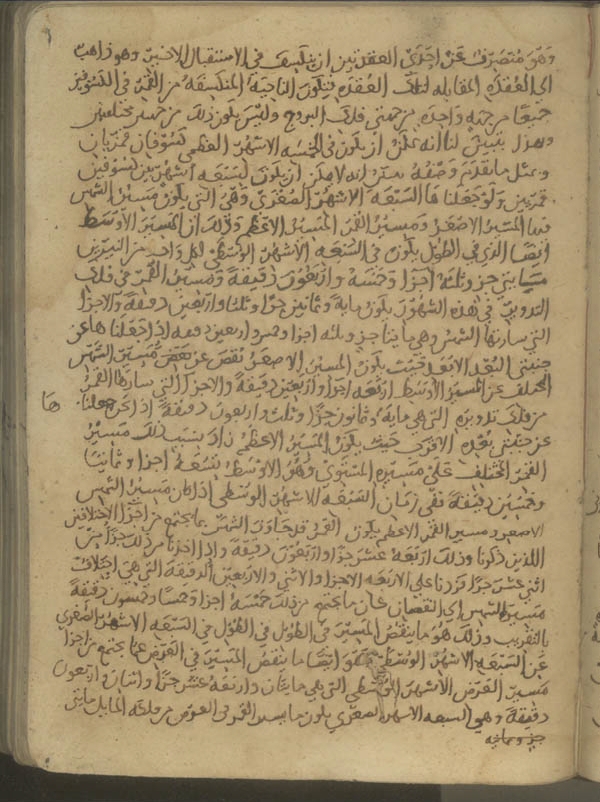 وهو متصرف عن احدى العقدتين ان ينكسف في الاستقبال الاخير وهو ذاهب
الى العقدة المقابلة لتلك العقدة فتكون الناحية المنكسفة من القمر في الكسوفين
جميعا من جهة واحدة من جهتي فلك البروج وليس يكون ذلك من جهتين مختلفتين
وهذا يتبين لنا انه يمكن ان يكون في الخمسة الاشهر العظمى كسوفان قمريان
وبمثل ما تقدم وصفه نبين انه لا يمكن ان يكون لسبعة اشهر بين كسوفين
قمريين ولو جعلنا ها السبعة الاشهر الصغرى وهي التي يكون مسير الشمس
فيها المسير الاصغر ومسير القمر المسير الاعظم وذلك ان المسير الاوسط
ايضا الذي في الطول يكون في السبعة الاشهر الوسطى لكل واحد من النيرين
مايتي جزو وثلثة اجزا وخمسة واربعون دقيقة ومسير القمر في فلك
التدوير في هذه الشهور يكون ماية وثمانين جزا وثلثا واربعين دقيقة والاجزا
التي سارتها الشمس وهي مايتا جزو وثلثه اجزا وخمس واربعين دقيقه اذا جعلناها عن
جنبتي البعد الابعد حيث يكون المسير الاصغر نقص عن بعض مسير الشمس
المختلف عن المسير الاوسط اربعة اجزا واربعين دقيقة والاجزا التي سارها القمر
من فلك تدويره التي هي ماية وثمانون جزا وثلث واربعون دقيقة اذا نحن جعلنا ها
عن جنبتي بعده الاقرب حيث يكون المسير الاعظم زاد بسبب ذلك مسير
القمر المختلف على مسيره المستوي وهو الاوسط بتسعة اجزا وثمانيا
وخمسين دقيقة ففي زمان السبعة الاشهر الوسطى اذا كان مسير الشمس
الاصغر ومسير القمر الاعظم يكون القمر قد جاوز الشمس بما يجتمع من اجزا الاختلافين
اللذين ذكرنا وذلك اربعة عشر جزا واربعون دقيقة واذا اخذنا من ذلك جزا من
اثني عشر جزا فزدنا على الاربعة الاجزا والاثنين والاربعين الدقيقة التي هي اختلاف
مسيرة الشمس الى النقصان كان ما يجتمع من ذلك خمسة اجزا وخمسا وخمسون دقيقة
بالتقريب وذلك هو ما ينقص المسير في الطول في الطول في السبعة الاشهر الصغرى
عن السبعة الاشهر الوسطى وهو ايضا ما ينقص المسير في العرض عما يجتمع من اجزا
مسير العرض الاشهر الوسطى التي هي مايتان واربعة عشر جزا واثنان واربعون
دقيقة وفي السبعة الاشهر الصغرى يكون ما يسير القمر في العرض من فلكه المايل مايتي
جزو وثمانيه